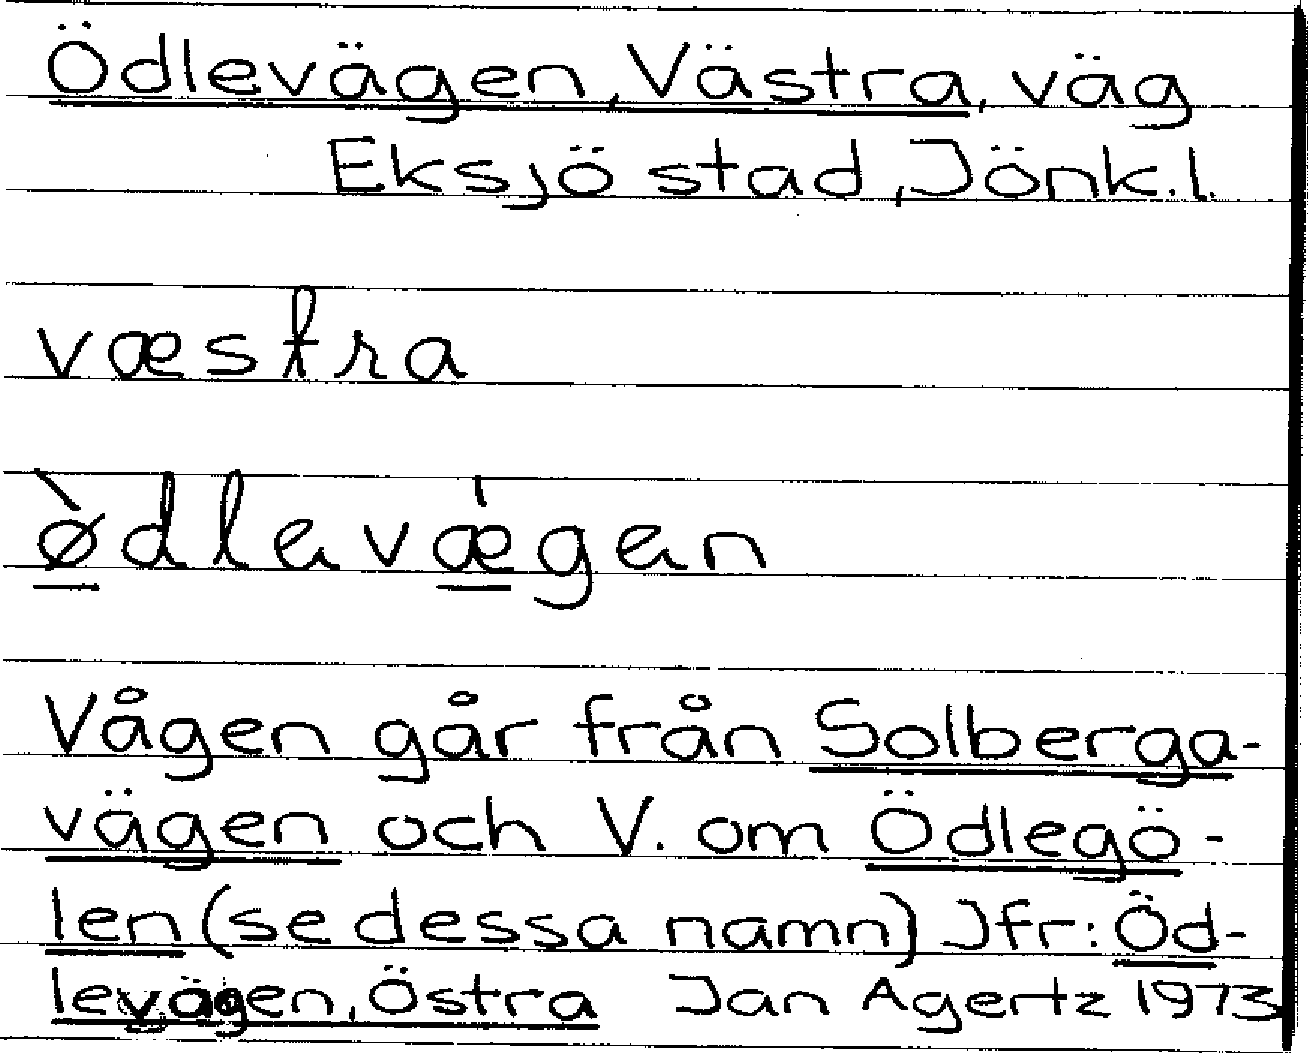 Ödlevägen, Västra, väg
Eksjö stad, Jönk.l.
væstra
ø̀dlevǽgen
Vågen går från Solberga-
vägen och V. om Ödlegö-
len (se dessa namn) Jfr: Öd-
levägen, Östra Jan Agertz 1973